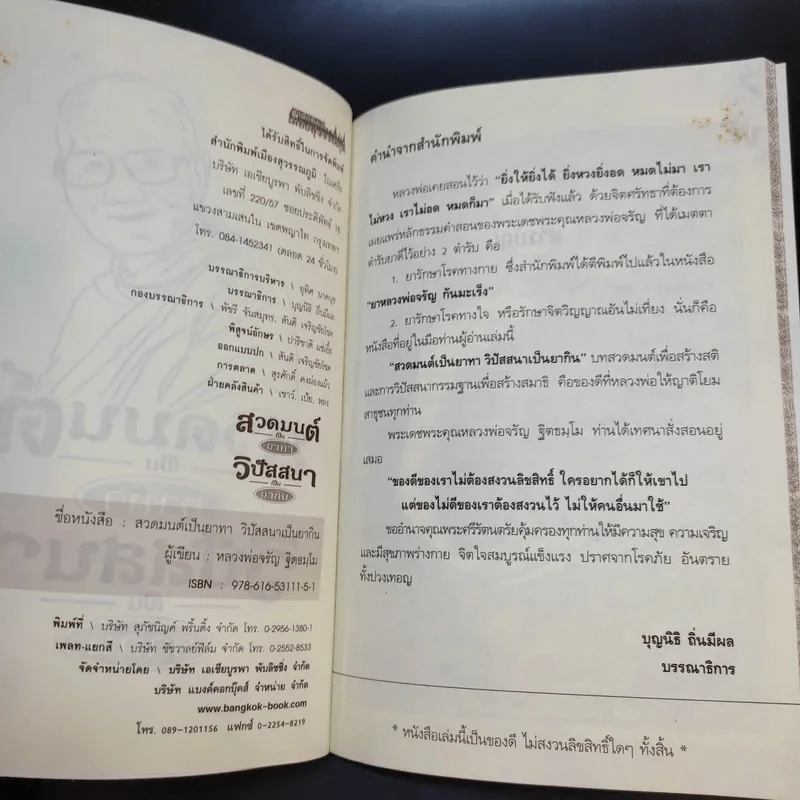 ได้รับสิทธิ์ในการจัดพิมพ์
สำนักพิมพ์เมืองสุวรรณภูมิ ในเครือ
บริษัท เอเชียบูรพา พับลิชชิ่ง จำกัด
เลขที่ 220/57 ซอยประดิพัทธ์ 18
แขวงสามเสนใน เขตพญาไท กรุงเทพฯ
โทร. 084-1452341 (ตลอด 24 ชั่วโมง)
บรรณาธิการบริหาร \ อุทิศ
บรรณาธิการ \ บุญนิธิ ถิ่นมีผล
กองบรรณาธิการ \ พัชรี จันสมุทร, สันติ เจริญชัยโชค
พิสูจน์อักษร \ ปาริชาติ แซ่เอี้ย
ออกแบบปก \ สันติ เจริญชัยโชค
การตลาด \ สุรศักดิ์ คงผ่องแผ้ว
ฝ่ายคลังสินค้า \ เชาว์, เปี๊ย, หลง
สวดมนต์
เป็น
ยาทา
วิปัสสนา
เป็น
ยากิน
ชื่อหนังสือ : สวดมนต์เป็นยาทา วิปัสสนาเป็นยากิน
ผู้เขียน : หลวงพ่อจรัญ ฐิตธมฺโม
ISBN : 978-616-53111-5-1
พิมพ์ที่ \ บริษัท สุภัชนิญค์ พริ้นติ้ง จำกัด โทร. 0-2956-1380-1
เพลท-แยกสี \ บริษัท ชัชวาลย์ฟิล์ม จำกัด โทร. 0-2552-8533
จัดจำหน่ายโดย \ บริษัท เอเชียบูรพา พับลิชชิ่ง จำกัด
บริษัท แบงค์คอกบุ๊คส์ จำหน่าย จำกัด
www.bangkok-book.com
โทร. 089-1201156 แฟกซ์ 0-2254-8219
คำนำจากสำนักพิมพ์
หลวงพ่อเคยสอนไว้ว่า "ยิ่งให้ยิ่งได้ ยิ่งหวงยิ่งอด หมดไม่มา เรา
ไม่หวง เราไม่อด หมดก็มา" เมื่อได้รับฟังแล้ว ด้วยจิตศรัทธาที่ต้องการ
เผยแพร่หลักธรรมคำสอนของพระเดชพระคุณหลวงพ่อจรัญ ที่ได้เมตตา
ตำรับยาดีไว้อย่าง 2 ตำรับ คือ
1. ยารักษาโรคทางกาย ซึ่งสำนักพิมพ์ได้ตีพิมพ์ไปแล้วในหนังสือ
"ยาหลวงพ่อจรัญ กันมะเร็ง"
2. ยารักษาโรคทางใจ หรือรักษาจิตวิญญาณอันไม่เที่ยง นั่นก็คือ
หนังสือที่อยู่ในมือท่านผู้อ่านเล่มนี้
"สวดมนต์เป็นยาทา วิปัสสนาเป็นยากิน" บทสวดมนต์เพื่อสร้างสติ
และการวิปัสสนากรรมฐานเพื่อสร้างสมาธิ คือของดีที่หลวงพ่อให้ญาติโยม
สาธุชนทุกท่าน
พระเดชพระคุณหลวงพ่อจรัญ ฐิตธมฺโม ท่านได้เทศนาสั่งสอนอยู่
เสมอ
"ของดีของเราไม่ต้องสงวนลิขสิทธิ์ ใครอยากได้ก็ให้เขาไป
แต่ของไม่ดีของเราต้องสงวนไว้ ไม่ให้คนอื่นมาใช้"
ขออำนาจคุณพระศรีรัตนตรัยคุ้มครองทุกท่านให้มีความสุข ความเจริญ
และมีสุขภาพร่างกาย จิตใจสมบูรณ์แข็งแรง ปราศจากโรคภัย อันตราย
ทั้งปวงเทอญ
บุญนิธิ ถิ่นมีผล
บรรณาธิการ
* หนังสือเล่มนี้เป็นของดี ไม่สงวนลิขสิทธิ์ใดๆ ทั้งสิ้น *